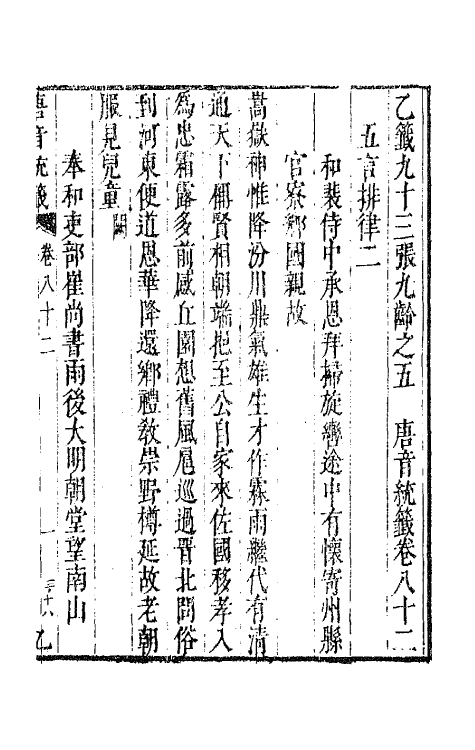 乙籤九十三張九齡之五　唐音統籤卷八十二
五言排律二
和裴侍中承恩拜掃旋轡途中有懷寄州縣
官寮鄉國親故
嵩嶽神惟降汾川鼎氣雄生才作霖雨繼代有清
通天下稱賢相朝端挹至公自家來佐國移孝入
為忠霜露多前感丘園想舊風扈巡過晉北問俗
到河東便道恩華降還鄉禮教崇野樽延故老朝
服見兒童闕
奉和吏部崔尚書雨後大明朝堂望南山
唐音統籤　卷八十二　一　三十六　乙